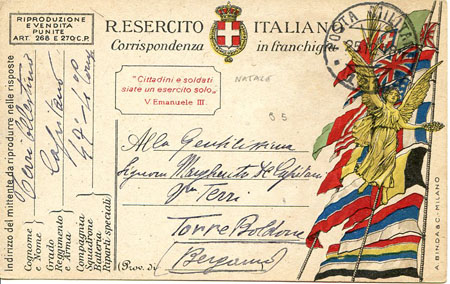 RIPRODUZIONE
E VENDITA
PUNITE
ART. 268 E 270 C.P.
R. ESERCITO ITALIANO
Corrispondenza in franchigia
POSTA MILITARE
"Cittadini e soldati
siate un esercito solo„
V. Emanuele III.
NATALE
95
Alla Gentilissima
Signora Margherita De Capitani
Torre Boldone
(Prov. di Bergamo)
Indirizzo del mittente da riprodurre nelle risposte
Cognome
e Nome
Grado
Reggimento
e Arma
Compagnia
Squadrone
Batteria
Riparti speciali
A. BINDA & C. - MILANO